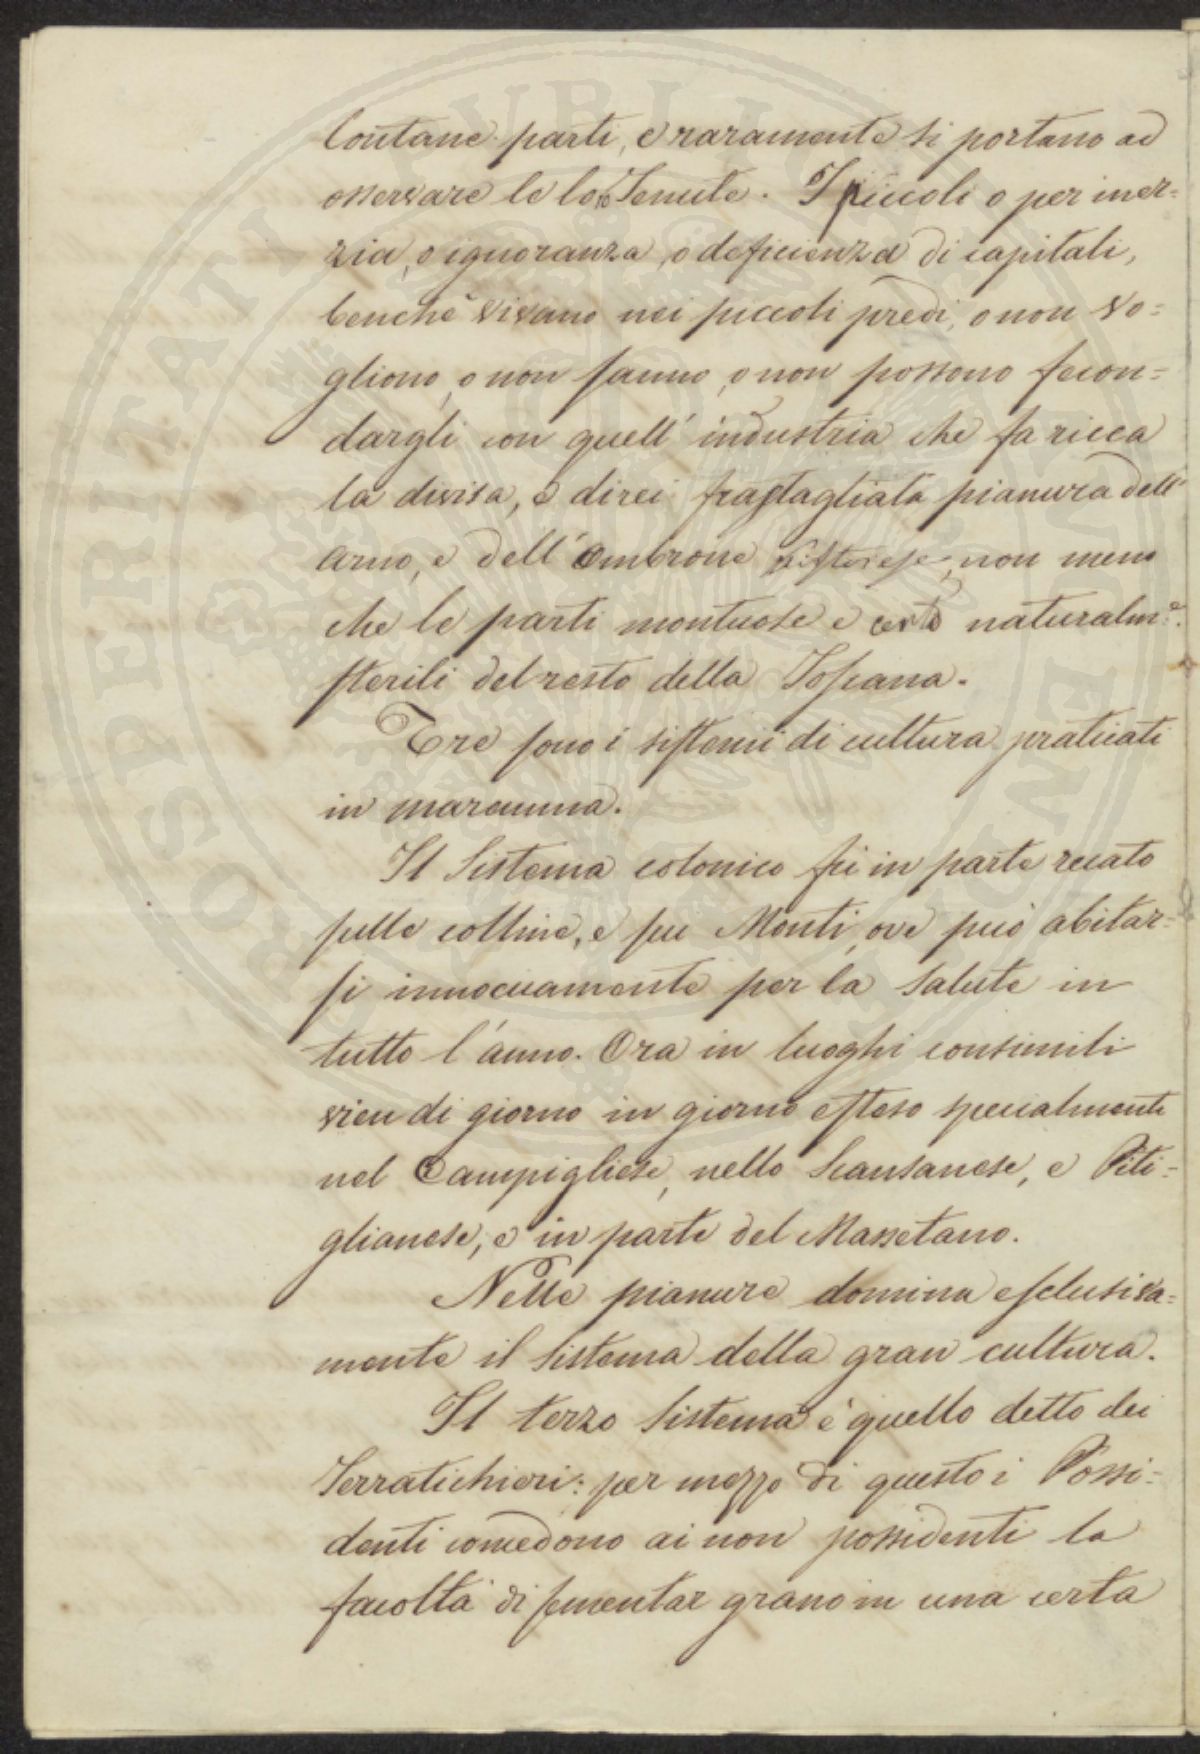 lontane parti, e raramente si portano ad
osservare le loro Tenute. I piccoli o per iner=
zia, o ignoranza, o deficienza di capitali,
benchè vivano nei piccoli predi, o non vo=
gliono, o non sanno, o non possono fecon=
dargli con quell'industria che fa ricca
la divisa, e direi frastagliata pianura dell'
Arno, e dell'Ombrone pistoiese, non meno
che le parti montuose e certo naturalmᵉ.
sterili del resto della Toscana.
Tre sono i sistemi di cultura praticati
in maremma.
Il Sistema colonico fu in parte recato
sulle colline, e su Monti, ove può abitar=
si innocuamente per la salute in
tutto l'anno. Ora in luoghi consimili
vien di giorno in giorno esteso specialmente
nel Campigliese, nello Scansanese, e Piti=
glianese, e in parte del Massetano.
Nelle pianure domina esclusiva=
mente il sistema della gran cultura.
Il terzo Sistema è quello detto dei
Terratichieri: per mezzo di questo i Possi=
denti concedono ai non possidenti la
facoltà di sementar grano in una certa
PROSPERITATI PUBLICAE